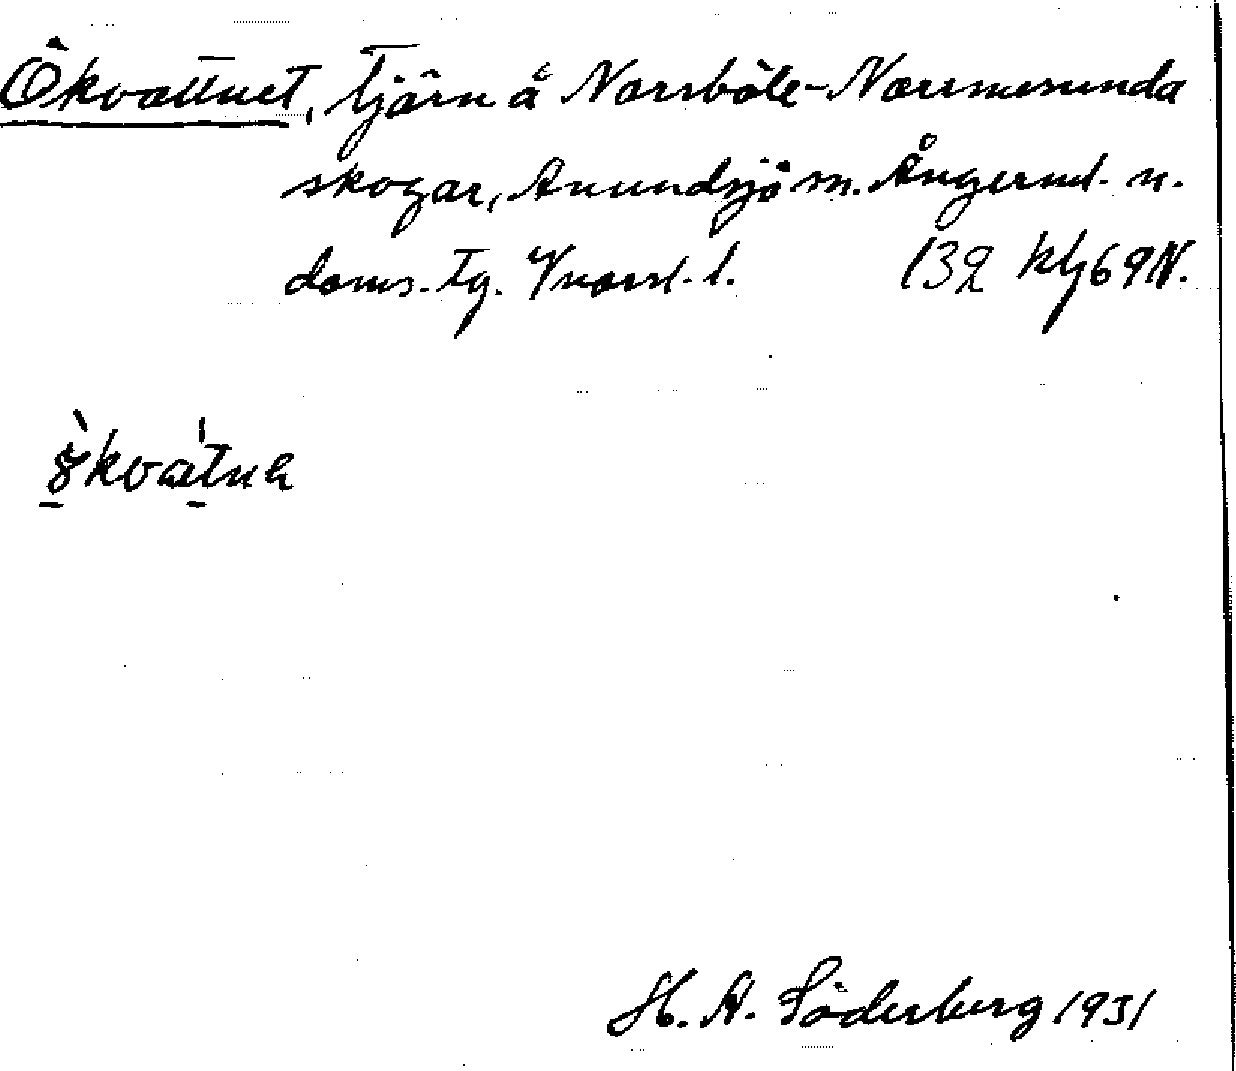 Ökvattnet, tjärn å Norrböle-Norrmesunda
skogar, Anundsjö sn. Ångerml. n.
doms. tg. Vnorrl. l. 132 kbg 69 N.
ökvatna
H. A. Söderberg 1931